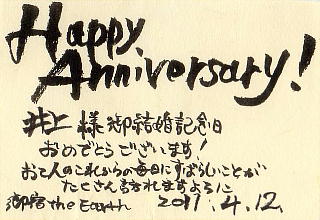 Happy
Anniversary!
井上 様 御結婚記念日
おめでとうございます!
お二人のこれからの毎日にすばらしいことが
たくさん訪れますように
御宿 the Earth 2011.4.12.